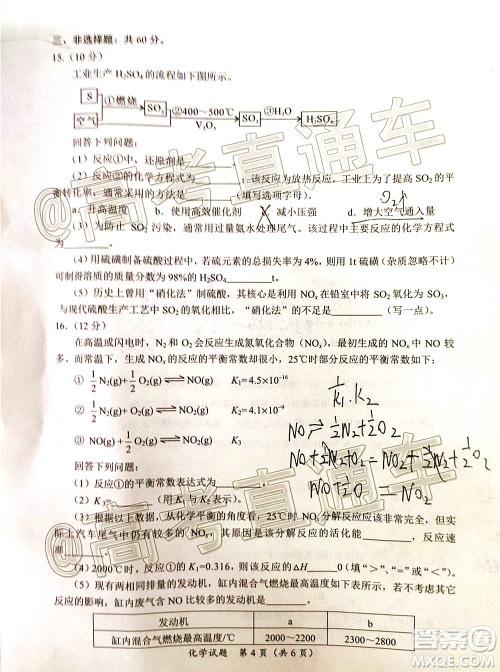 三、非选择题：共 60 分。
15.（10 分）
工业生产 H₂SO₄ 的流程如下图所示。
S
空气
①燃烧
SO₂
②400～500℃
V₂O₅
SO₃
③H₂O
H₂SO₄
回答下列问题：
（1）反应①中，还原剂是
（2）反应②的化学方程式为 ；该反应为放热反应，工业上为了提高 SO₂ 的平
衡转化率，通常采用的方法是 （填写选项字母）。
O₂↑
a．升高温度 b．使用高效催化剂 c．减小压强 d．增大空气通入量
（3）为防止 SO₂ 污染，通常用过量氨水处理尾气。该过程中主要反应的化学方程式
为 。
（4）用硫磺制备硫酸过程中，若硫元素的总损失率为 4%，则用 1t 硫磺（杂质忽略不计）
可制得溶质的质量分数为 98%的 H₂SO₄ t。
（5）历史上曾用“硝化法”制硫酸，其核心是利用 NOₓ 在铅室中将 SO₂ 氧化为 SO₃，
与现代硫酸生产工艺中 SO₂ 的氧化相比，“硝化法”的不足是 （写一点）。
16.（12 分）
在高温或闪电时，N₂ 和 O₂ 会发生反应生成氮氧化合物（NOₓ），最初以生成 NO 较
多，而对于温度较低时，生成 NOₓ 的反应的平衡常数却很小，25℃时部分反应的平衡常数如下：
① 1/2 N₂(g)+ 1/2 O₂(g) ⇌ NO(g) K₁=4.5×10⁻¹⁶
② 1/2 N₂(g)+O₂(g) ⇌ NO₂(g) K₂=4.1×10⁻⁹
③ NO(g)+ 1/2 O₂(g) ⇌ NO₂(g) K₃
1/K₁·K₂
NO ⇌ 1/2N₂+1/2O₂
回答下列问题：
（1）反应①的平衡常数表达式为 。
（2）K₃= （用 K₁ 与 K₂ 表示）。
（3）根据以上数据，从化学平衡的角度看，25℃时 NOₓ 分解反应应该非常完全。但实
际上汽车尾气中仍含有较多 NOₓ，其原因是该分解反应的活化能 ，反应速
率 。
（4）2000℃时，K₁=0.316，则该反应的ΔH 0（填“>”、“=”或“<”）。
（5）现有两个相同排量的发动机，缸内混合气燃烧最高温度如下表所示，不考虑其它
反应的影响，缸内废气中含 NO 较多的发动机是 。
发动机 a b
缸内混合气燃烧最高温度/℃ 2000～2200 2300～2800
化学试题 第 4 页（共 6 页）
@高考直通车
@高考直通车
答案圈